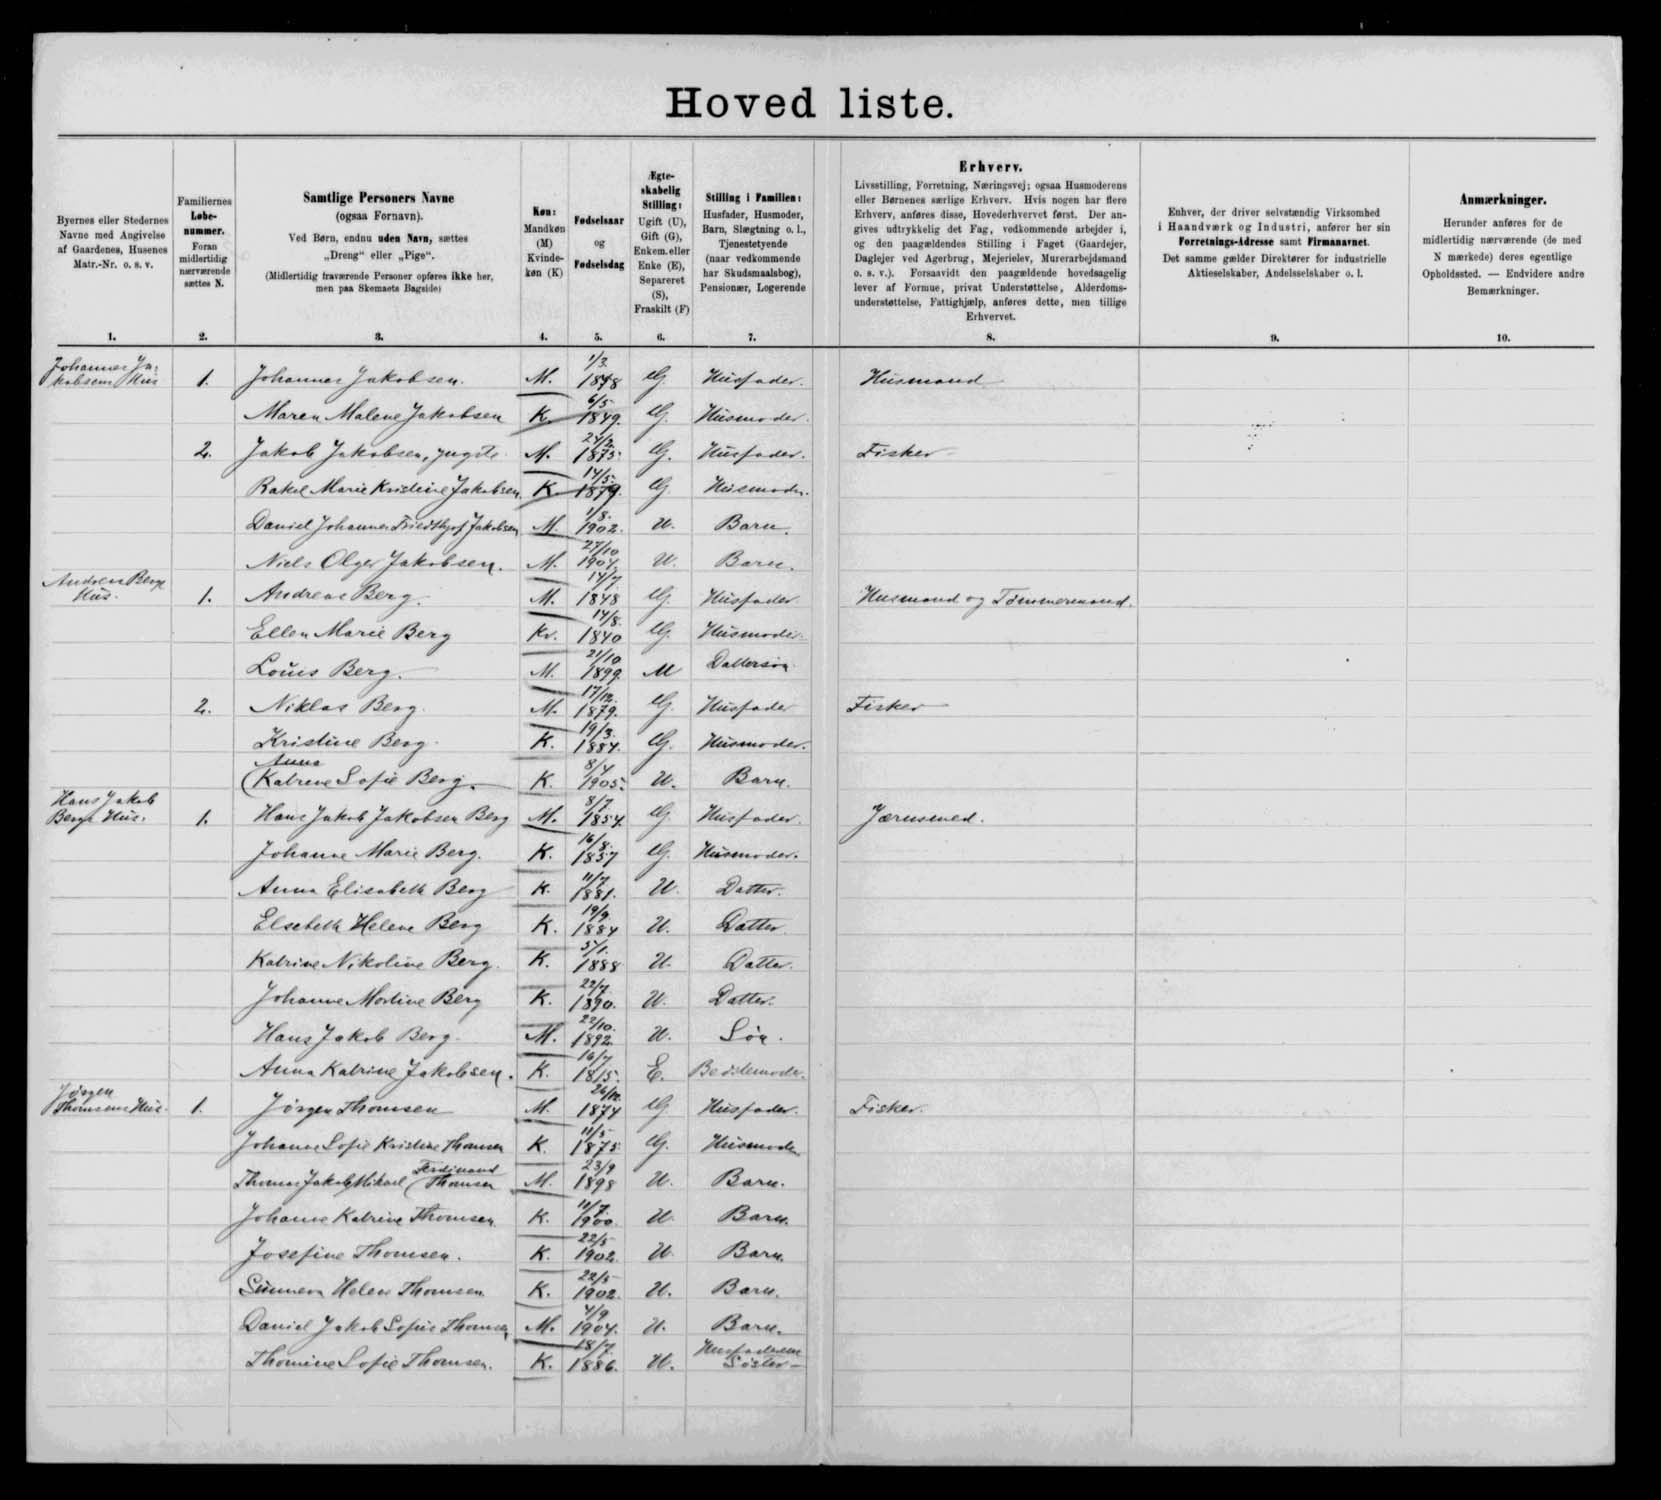 Hoved liste.
Byernes eller Stedernes
Navne med Angivelse
af Gaardenes, Husenes
Matr.-Nr. o. s. v.
1.
Familiernes
Løbe-
nummer.
Foran
midlertidig
nærværende
sættes N.
2.
Samtlige Personers Navne
(ogsaa Fornavn).
Ved Børn, endnu uden Navn, sættes
„Dreng“ eller „Pige“.
(Midlertidig fraværende Personer opføres ikke her,
men paa Skemaets Bagside)
3.
Køn:
Mandkøn
(M)
Kvinde-
køn (K)
4.
Fødselsaar
og
Fødselsdag
5.
Ægte-
skabelig
Stilling:
Ugift (U),
Gift (G),
Enkem. eller
Enke (E),
Separeret
(S),
Fraskilt (F)
6.
Stilling i Familien:
Husfader, Husmoder,
Barn, Slægtning o. l.,
Tjenestetyende
(naar vedkommende
har Skudsmaalsbog),
Pensionær, Logerende
7.
Erhverv.
Livsstilling, Forretning, Næringsvej; ogsaa Husmoderens
eller Børnenes særlige Erhverv. Hvis nogen har flere
Erhverv, anføres disse, Hovederhvervet først. Der an-
gives udtrykkelig det Fag, vedkommende arbejder i,
og den paagældendes Stilling i Faget (Gaardejer,
Daglejer ved Agerbrug, Mejerielev, Murerarbejdsmand
o. s. v.). Forsaavidt den paagældende hovedsagelig
lever af Formue, privat Understøttelse, Alderdoms-
understøttelse, Fattighjælp, anføres dette, men tillige
Erhvervet.
8.
Enhver, der driver selvstændig Virksomhed
i Haandværk og Industri, anfører her sin
Forretnings-Adresse samt Firmanavnet.
Det samme gælder Direktører for industrielle
Aktieselskaber, Andelsselskaber o. l.
9.
Anmærkninger.
Herunder anføres for de
midlertidig nærværende (de med
N mærkede) deres egentlige
Opholdssted. — Endvidere andre
Bemærkninger.
10.
Johannes Ja-
kobsens Hus 1. Johannes Jakobsen. M. 1/3 1848 G Husfader. Husmand
Maren Malene Jakobsen K. 6/5 1849. G. Husmoder.
2. Jakob Jakobsen, yngste. M. 24/2 1875. G. Husfader. Fisker
Rakel Marie Kristine Jakobsen K. 14/5 1879. G Husmoder.
Daniel Johannes Friedthjof Jakobsen M. 1/8. 1902. U. Barn.
Niels Olger Jakobsen. M. 27/10 1904. U. Barn.
Andreas Bergs
Hus. 1. Andreas Berg. M. 14/7. 1848 G. Husfader Husmand og Tømmermand.
Ellen Marie Berg Kv. 14/8. 1840 G. Husmoder
Louis Berg. M. 21/10 1899. M Dattersøn
2. Niklas Berg. M. 17/12. 1879. G. Husfader Fisker
Kristine Berg. K. 19/3. 1884. G. Husmoder.
Anna
Katrine Sofie Berg. K. 8/4 1905. U. Barn.
Hans Jakob
Bergs Hus. 1. Hans Jakob Jakobsen Berg M. 8/7. 1854. G Husfader. Jærnsmed.
Johanne Marie Berg. K. 16/8. 1857 G. Husmoder.
Anna Elisabeth Berg K. 11/7 1881. U. Datter.
Elsebeth Helene Berg K. 19/9. 1884 U. Datter.
Katrine Nikoline Berg. K. 5/1. 1888 U. Datter.
Johanne Mortine Berg K. 22/7. 1890. U. Datter.
Hans Jakob Berg. M. 22/10. 1892. U. Søn.
Anna Katrine Jakobsen. K. 16/7 1815. E. Bedstemoder.
Jørgen
Thomsens Hus. 1. Jørgen Thomsen M. 26/12. 1874 G Husfader. Fisker.
Johanne Sofie Kristine Thomsen K. 11/5 1875 G. Husmoder
Ferdinand
Thomas Jakob Mikael Thomsen M. 23/9 1898 U. Barn.
Johanne Katrine Thomsen K. 11/7. 1900. U. Barn.
Josefine Thomsen. K. 22/5 1902. U. Barn.
Sunneva Helene Thomsen K. 22/5 1902. U. Barn.
Daniel Jakob Sofus Thomsen M. 4/9 1904. U. Barn.
Thomine Sofie Thomsen. K. 18/7. 1886. U. Husfaderens Søster